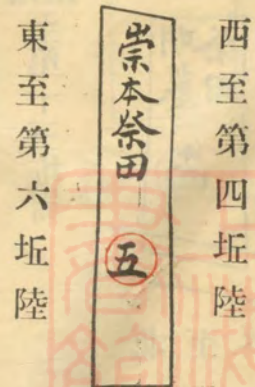 西至第四坵陸
崇本祭田
五
東至第六坵陸